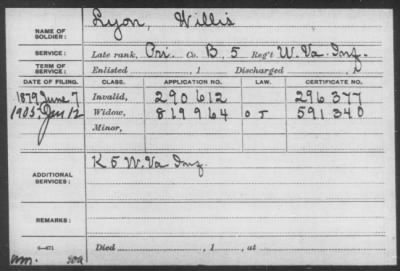 NAME OF SOLDIER: Lyon, Willis
SERVICE: Late rank, Pri. Co. B, 5 Reg't W. Va. Inf.
TERM OF SERVICE: Enlisted , 1 Discharged , 1
DATE OF FILING. CLASS. APPLICATION NO. LAW. CERTIFICATE NO.
1879 June 7 Invalid, 290612 296377
1905 Jan 12 Widow, 819964 O J 591340
Minor,
ADDITIONAL SERVICES: K 5 W. Va Inf
REMARKS:
Died , 1 , at